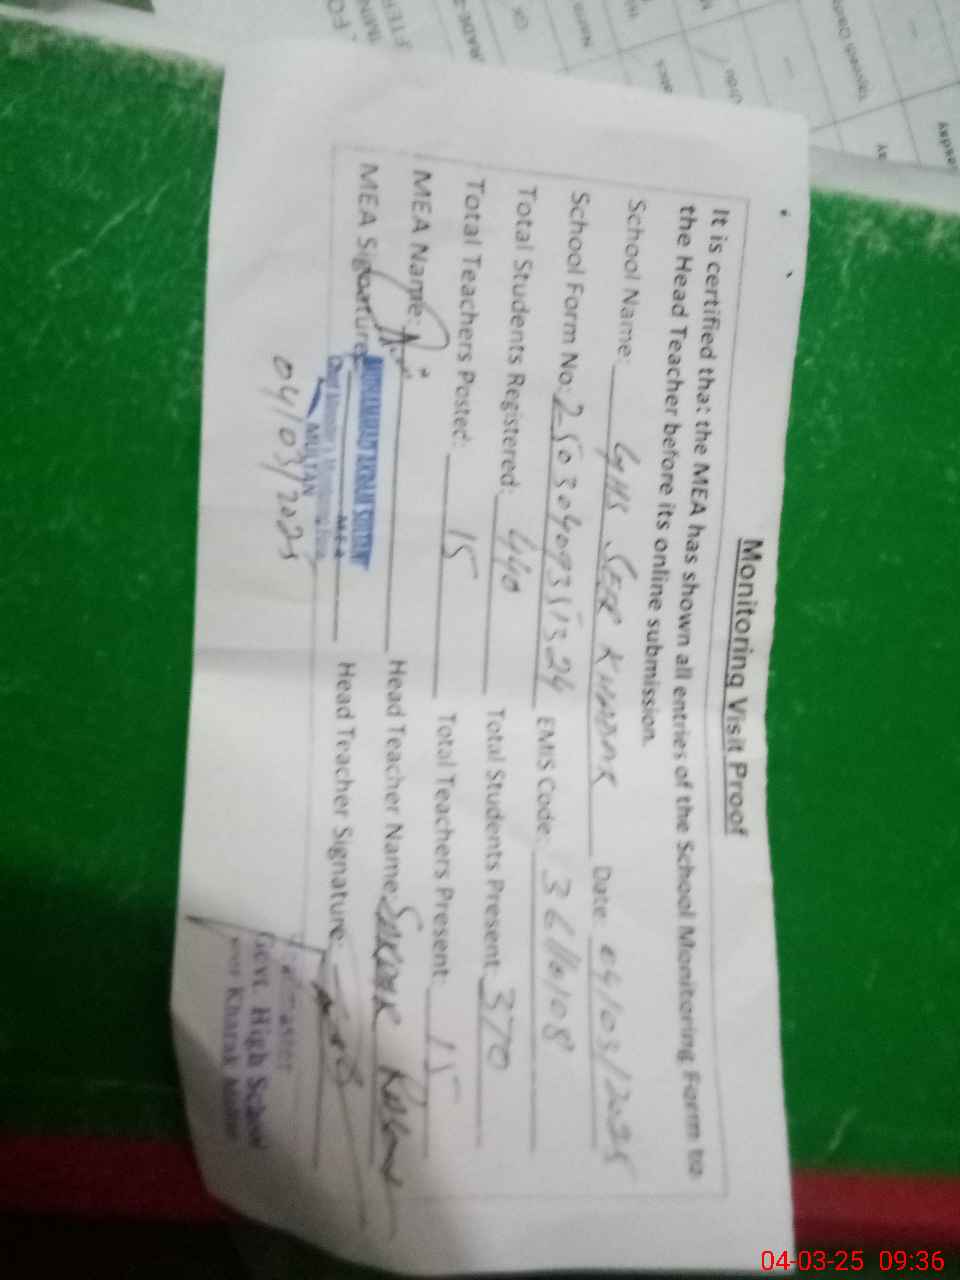 Monitoring Visit Proof
It is certified that the MEA has shown all entries of the School Monitoring Form to
the Head Teacher before its online submission.
School Name: GHS SER KHARAK Date: 04/03/2025
School Form No: EMIS Code: 36110108
Total Students Registered: 440 Total Students Present: 370
Total Teachers Posted: 15 Total Teachers Present: 15
MEA Name: Head Teacher Name:
MEA Signature: Head Teacher Signature:
MEA
MULTAN
04/03/2025
Govt. High School
Kharak Multan
04-03-25 09:36